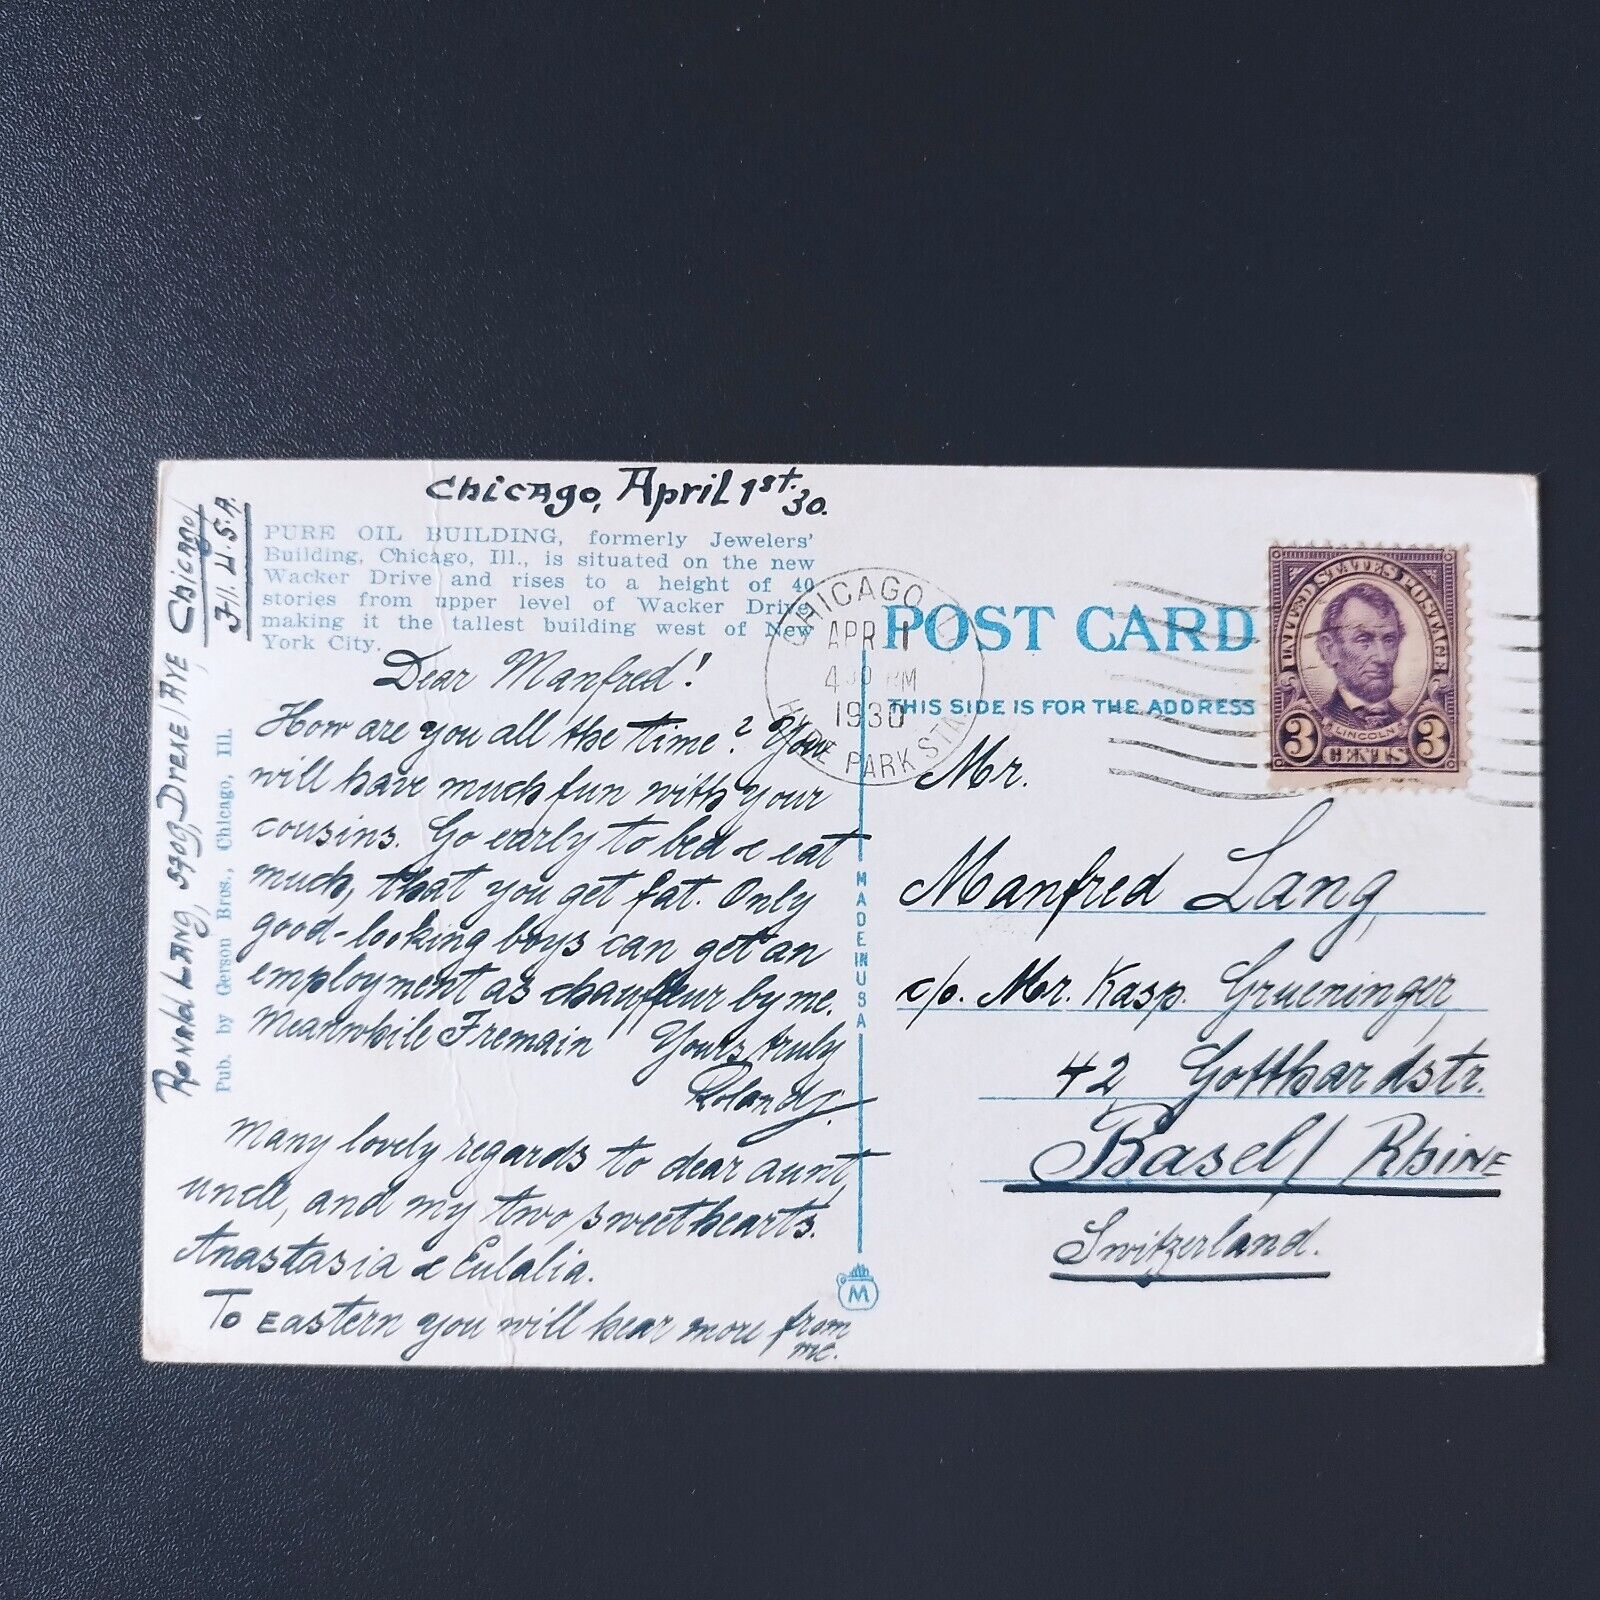 Chicago, April 1st. 30.
PURE OIL BUILDING, formerly Jewelers'
Building, Chicago, Ill., is situated on the new
Wacker Drive and rises to a height of 40
stories from upper level of Wacker Drive,
making it the tallest building west of New
York City.
Dear Manfred!
How are you all the time? You
will have much fun with your
cousins. Go early to bed & eat
much, that you get fat. Only
good-looking boys can get an
employment as chauffeur by me.
Meanwhile I remain Yours truly
Many lovely regards to dear aunt,
uncle, and my two sweethearts.
Anastasia & Eulalia.
To Eastern you will hear more from
me.
Ronald Lang, Drexel Ave, Chicago,
Ill. U.S.A.
Pub. by Gerson Bros., Chicago, Ill.
MADE IN USA
M
CHICAGO
APR 1
PM
1930
HYDE PARK STA.
POST CARD
THIS SIDE IS FOR THE ADDRESS
UNITED STATES POSTAGE
LINCOLN
3 CENTS 3
Mr.
Manfred Lang,
c/o. Mr. Kasp. Grueninger,
42 Gotthardstr.
Basel / Rhine
Switzerland.